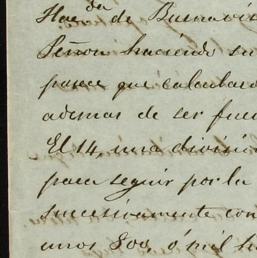 Hac.da de Buenavis
Señor haciendo su
parece que calculaba
ademas de ser fue
El 14, una division
para seguir por la
sucesivamente con
unos 800, ó mil h